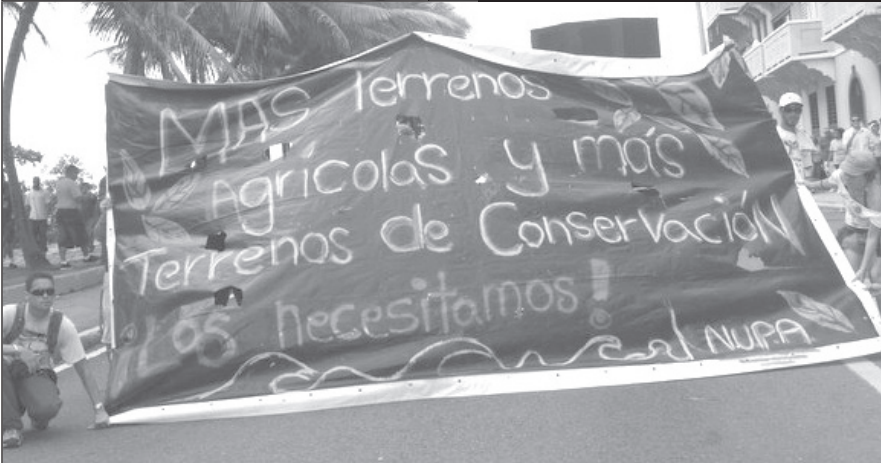 MAS Terrenos
Agrícolas y más
Terrenos de Conservación
Los necesitamos!
NUPA